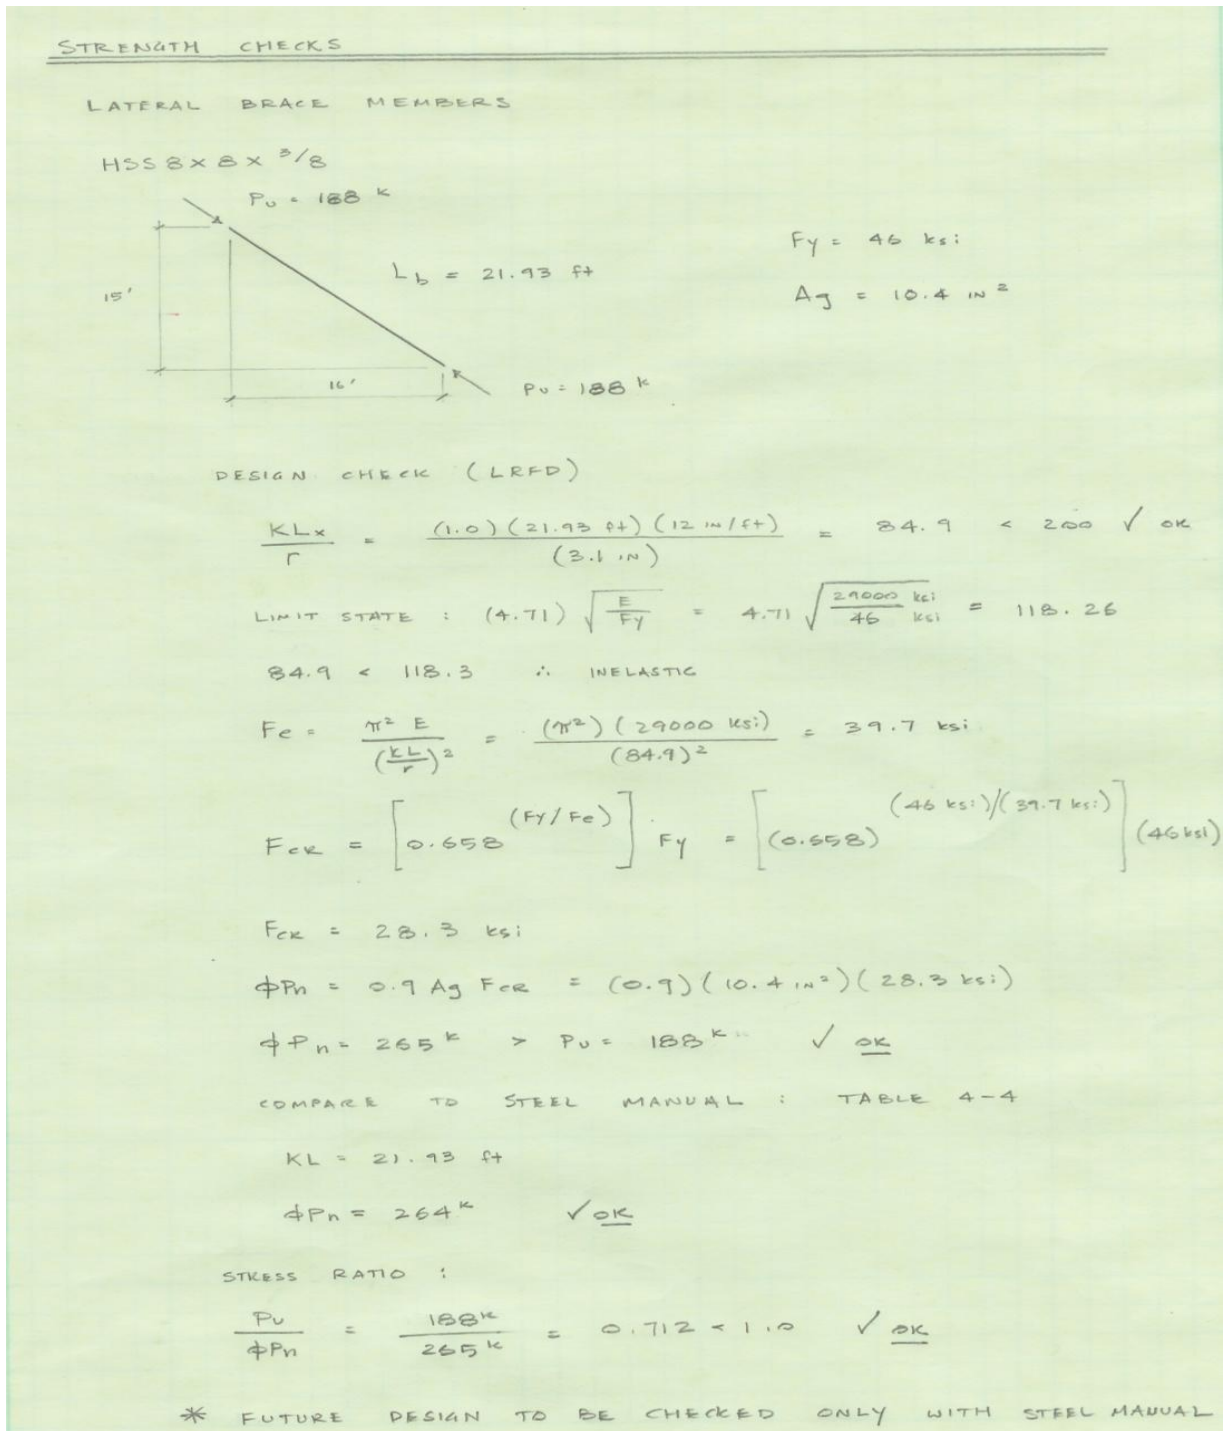 STRENGTH CHECKS
LATERAL BRACE MEMBERS
HSS 8 x 8 x 3/8
Pu = 188 k
Fy = 46 ksi
Lb = 21.93 ft
Ag = 10.4 IN²
15'
16'
Pu = 188 k
DESIGN CHECK (LRFD)
KLx / r = (1.0)(21.93 ft)(12 IN/ft) / (3.1 IN) = 84.9 < 200 ✓ OK
LIMIT STATE : (4.71) √(E/Fy) = 4.71 √(29000 ksi / 46 ksi) = 118.26
84.9 < 118.3 ∴ INELASTIC
Fe = π² E / (KL/r)² = (π²)(29000 ksi) / (84.9)² = 39.7 ksi
FCR = [0.658^(Fy/Fe)] Fy = [(0.658)^(46 ksi)/(39.7 ksi)] (46 ksi)
FCR = 28.3 ksi
ϕPn = 0.9 Ag FCR = (0.9)(10.4 IN²)(28.3 ksi)
ϕPn = 265 k > Pu = 188 k ✓ OK
COMPARE TO STEEL MANUAL : TABLE 4-4
KL = 21.93 ft
ϕPn = 264 k ✓ OK
STRESS RATIO :
Pu / ϕPn = 188 k / 265 k = 0.712 < 1.0 ✓ OK
* FUTURE DESIGN TO BE CHECKED ONLY WITH STEEL MANUAL